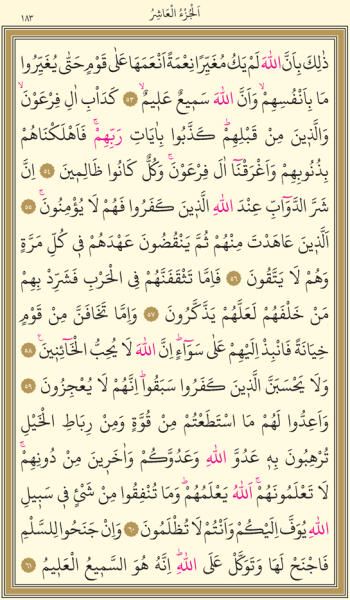 اَلْجُزْءُ الْعَاشِرُ
١٨٣
ذٰلِكَ بِاَنَّ اللّٰهَ لَمْ يَكُ مُغَيِّرًا نِعْمَةً اَنْعَمَهَا عَلٰى قَوْمٍ حَتّٰى يُغَيِّرُوا
مَا بِاَنْفُسِهِمْۙ وَاَنَّ اللّٰهَ سَمٖيعٌ عَلٖيمٌۙ ٥٣ كَدَاْبِ اٰلِ فِرْعَوْنَۙ
وَالَّذٖينَ مِنْ قَبْلِهِمْۜ كَذَّبُوا بِاٰيَاتِ رَبِّهِمْۚ فَاَهْلَكْنَاهُمْ
بِذُنُوبِهِمْ وَاَغْرَقْنَٓا اٰلَ فِرْعَوْنَۚ وَكُلٌّ كَانُوا ظَالِمٖينَ ٥٤ اِنَّ
شَرَّ الدَّوَٓابِّ عِنْدَ اللّٰهِ الَّذٖينَ كَفَرُوا فَهُمْ لَا يُؤْمِنُونَۚ ٥٥
اَلَّذٖينَ عَاهَدْتَ مِنْهُمْ ثُمَّ يَنْقُضُونَ عَهْدَهُمْ فٖى كُلِّ مَرَّةٍ
وَهُمْ لَا يَتَّقُونَ ٥٦ فَاِمَّا تَثْقَفَنَّهُمْ فِى الْحَرْبِ فَشَرِّدْ بِهِمْ
مَنْ خَلْفَهُمْ لَعَلَّهُمْ يَذَّكَّرُونَ ٥٧ وَاِمَّا تَخَافَنَّ مِنْ قَوْمٍ
خِيَانَةً فَانْبِذْ اِلَيْهِمْ عَلٰى سَوَٓاءٍۜ اِنَّ اللّٰهَ لَا يُحِبُّ الْخَٓائِنٖينَۚ ٥٨
وَلَا يَحْسَبَنَّ الَّذٖينَ كَفَرُوا سَبَقُواۜ اِنَّهُمْ لَا يُعْجِزُونَ ٥٩
وَاَعِدُّوا لَهُمْ مَا اسْتَطَعْتُمْ مِنْ قُوَّةٍ وَمِنْ رِبَاطِ الْخَيْلِ
تُرْهِبُونَ بِهٖ عَدُوَّ اللّٰهِ وَعَدُوَّكُمْ وَاٰخَرٖينَ مِنْ دُونِهِمْۚ
لَا تَعْلَمُونَهُمْۚ اَللّٰهُ يَعْلَمُهُمْۜ وَمَا تُنْفِقُوا مِنْ شَىْءٍ فٖى سَبٖيلِ
اللّٰهِ يُوَفَّ اِلَيْكُمْ وَاَنْتُمْ لَا تُظْلَمُونَ ٦٠ وَاِنْ جَنَحُوا لِلسَّلْمِ
فَاجْنَحْ لَهَا وَتَوَكَّلْ عَلَى اللّٰهِۜ اِنَّهُ هُوَ السَّمٖيعُ الْعَلٖيمُ ٦١